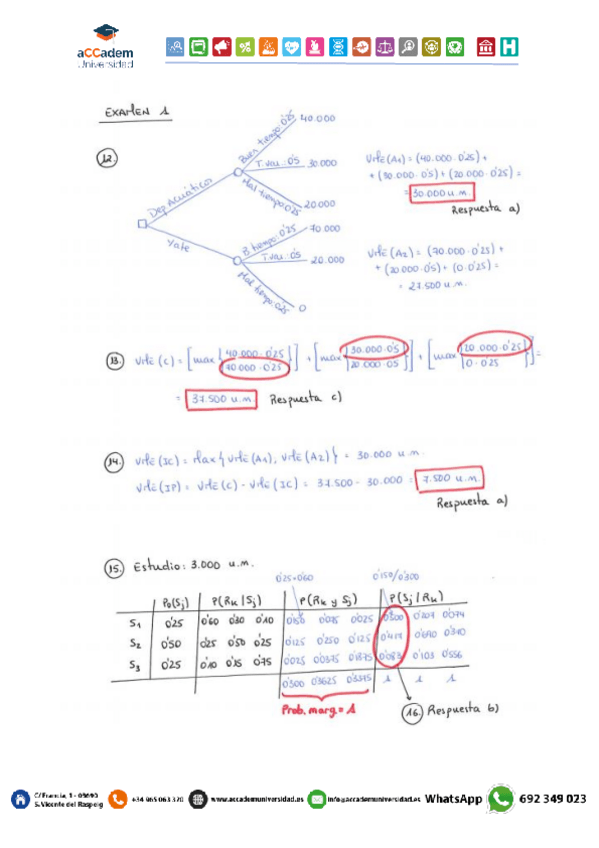 aCCadem
Universidad
EXAMEN 1
12.
Dep. Acuático
Buen tiempo: 0'25 40.000
T. vau.: 0'5 30.000
Mal tiempo: 0'25 20.000
Yate
B. tiempo: 0'25 70.000
T. vau.: 0'5 20.000
Mal tiempo: 0'25 0
VME (A1) = (40.000 · 0'25) +
+ (30.000 · 0'5) + (20.000 · 0'25) =
= 30.000 u.m.
Respuesta a)
VME (A2) = (70.000 · 0'25) +
+ (20.000 · 0'5) + (0 · 0'25) =
= 27.500 u.m.
13. VME (C) = [max {40.000 · 0'25 / 70.000 · 0'25}] + [max {30.000 · 0'5 / 20.000 · 0'5}] + [max {20.000 · 0'25 / 0 · 0'25}] =
= 37.500 u.m. Respuesta c)
14. VME (IC) = Max { VME (A1), VME (A2) } = 30.000 u.m.
VME (IP) = VME (C) - VME (IC) = 37.500 - 30.000 = 7.500 u.m.
Respuesta a)
15. Estudio: 3.000 u.m.
0'25·0'60 0'150/0'500
Po(Sj) P(Rk | Sj) P(Rk y Sj) P(Sj / Rk)
S1 0'25 0'60 0'30 0'10 0'150 0'075 0'025 0'300 0'207 0'074
S2 0'50 0'25 0'50 0'25 0'125 0'250 0'125 0'690 0'370
S3 0'25 0'10 0'15 0'75 0'025 0'0375 0'1875 0'083 0'103 0'556
0'300 0'3625 0'3375 1 1 1
Prob. marg. = 1
16. Respuesta b)
C/ Francia, 1 - 03690
S. Vicente del Raspeig
+34 965 063 320
www.accademuniversidad.es
info@accademuniversidad.es
WhatsApp
692 349 023